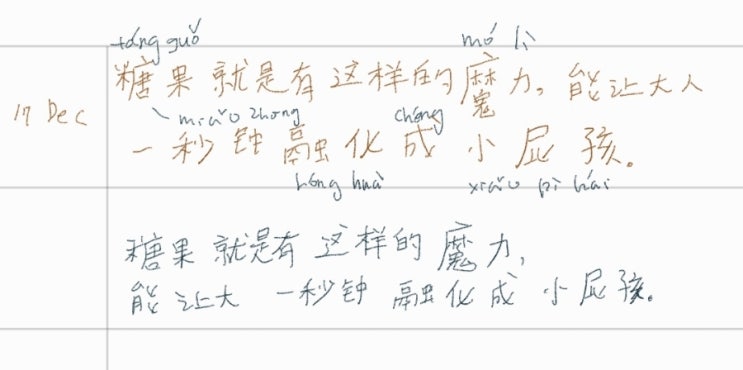 táng guǒ mó lì
糖果就是有这样的魔力。能让大人
17 Dec
miǎo zhōng chéng
一秒钟融化成小屁孩。
róng huà xiǎo pì hái
糖果就是有这样的魔力,
能让大一秒钟融化成小屁孩。